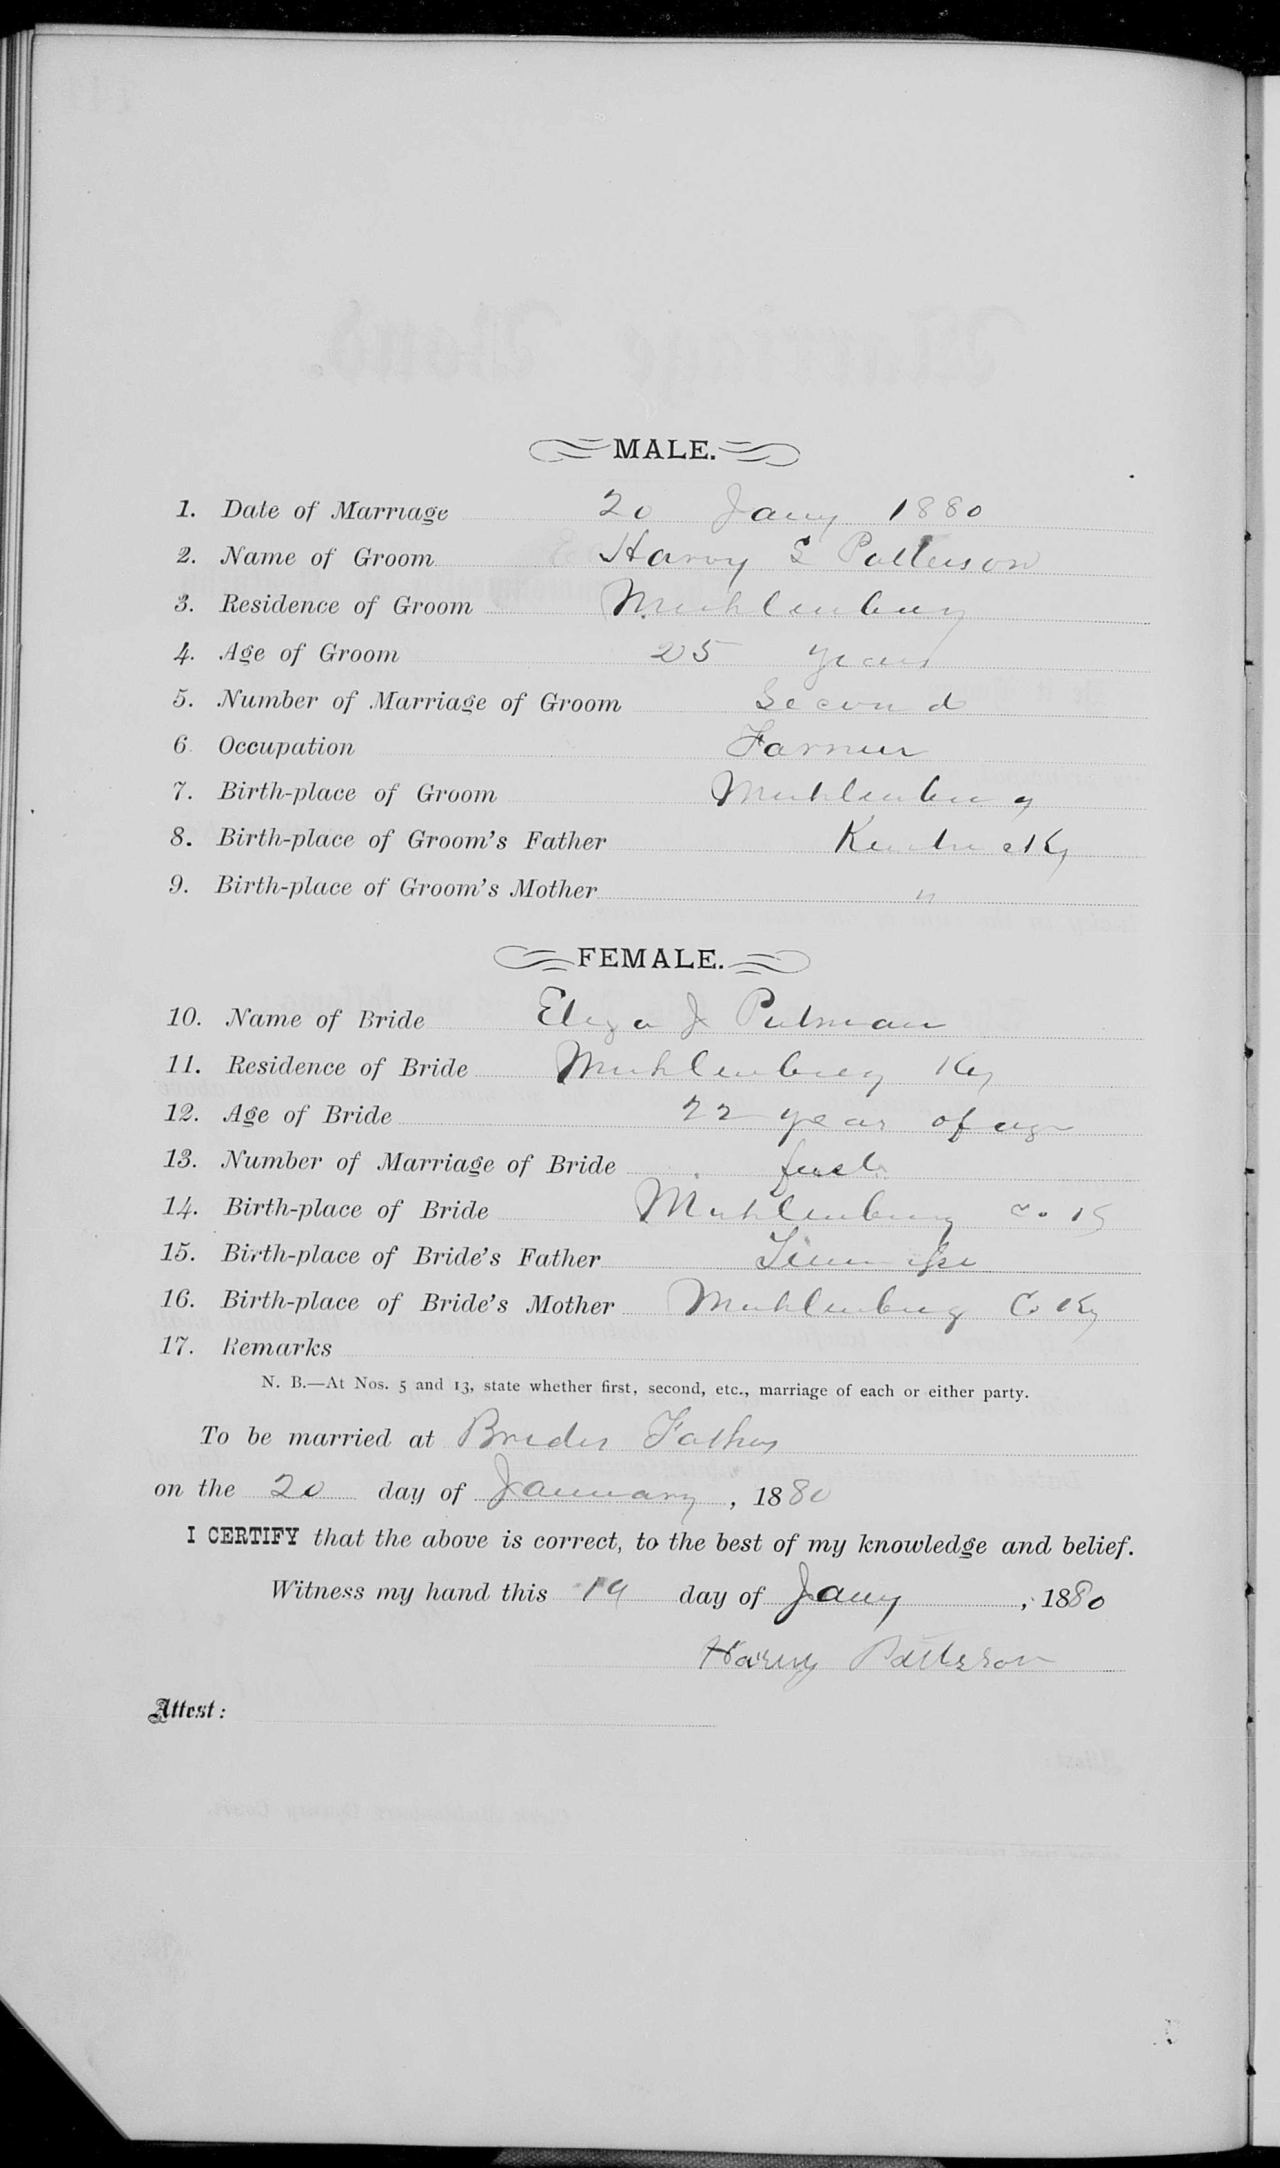 MALE.
1. Date of Marriage 20 Jany 1880
2. Name of Groom Harvy S Patterson
3. Residence of Groom Muhlenburg
4. Age of Groom 25 years
5. Number of Marriage of Groom Second
6 Occupation Farmer
7. Birth-place of Groom Muhlenburg
8. Birth-place of Groom's Father Kentucky
9. Birth-place of Groom's Mother "
FEMALE.
10. Name of Bride Eliza J Putman
11. Residence of Bride Muhlenburg Ky
12. Age of Bride 22 year of age
13. Number of Marriage of Bride first
14. Birth-place of Bride Muhlenburg Co. K
15. Birth-place of Bride's Father
16. Birth-place of Bride's Mother Muhlenburg Co Ky
17. Remarks
N. B.—At Nos. 5 and 13, state whether first, second, etc., marriage of each or either party.
To be married at Brides Fathers
on the 20 day of January, 1880
I CERTIFY that the above is correct, to the best of my knowledge and belief.
Witness my hand this 19 day of Jany, 1880
Harvy Patterson
Attest: